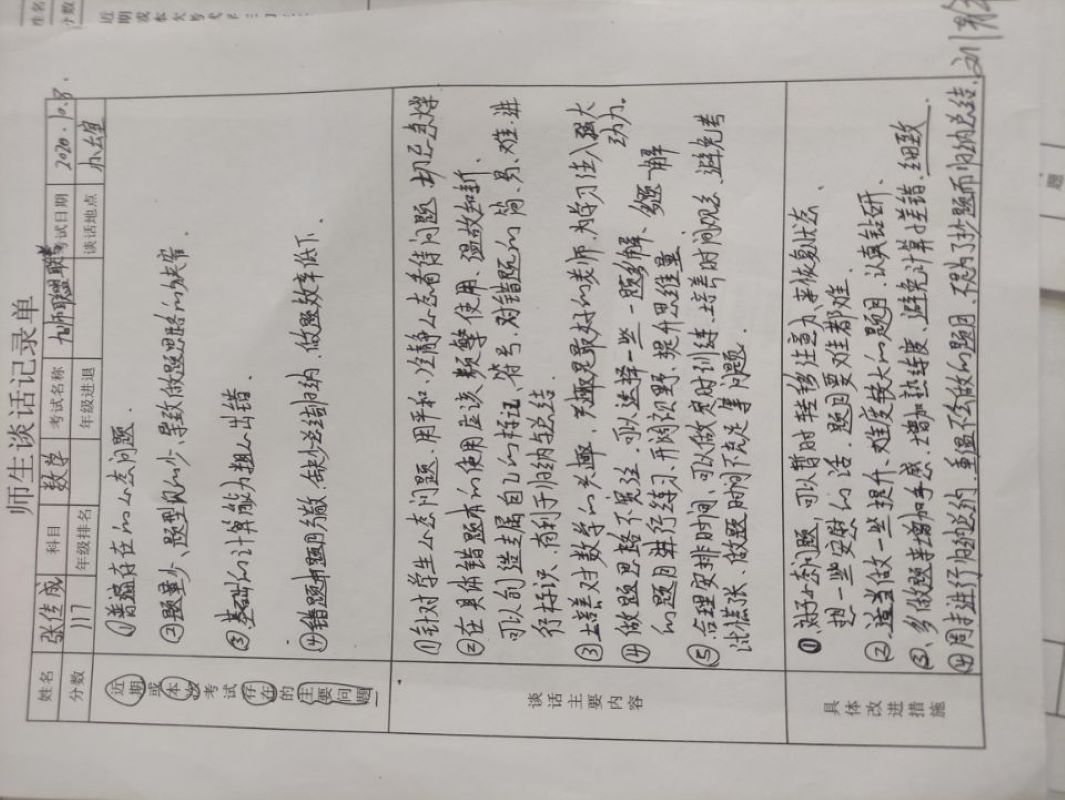 师生谈话记录单
姓名 张传成 科目 数学 考试名称 九师联盟联考 考试日期 2020.10.8.
分数 117 年级排名 年级进退 谈话地点 办公室
近期或本次考试存在的主要问题
①普遍存在的心态问题.
②题量少、题型见的少、导致做题思路的缺窄.
③基础的计算能力粗心出错.
④错题本题乃分散.缺少总结归纳、做题效率低下.
谈话主要内容
①针对学生心态问题.用平和、冷静心态看待问题.切忌急燥
②在具体错题本的使用应该频繁使用、温故知新.
可以创造专属自己的标记、符号.对错题的简、易、难、进
行标识.有利于归纳与总结.
③培养对数学的兴趣.兴趣是最好的老师.为学习注入强大
动力.
④做题思路不宽泛.可以选择一些一题多解、多题一解
的题目进行练习.开阔视野、提升思维量
⑤合理安排时间、可以做定时训练.培养时间观念、避免考
试慌张、做题时间不充足等问题.
具体改进措施
①对于心态问题,可以暂时转移注意力来恢复状态、
想一些安慰的话.题目要难都难.
②适当做一些提升、难度较大的题目.认真钻研、
③多做题来增加手感.增加熟练度、避免计算上差错.细致.
④周末进行归纳总结.重温不会做的题目.不是为了抄题而归纳总结.
题